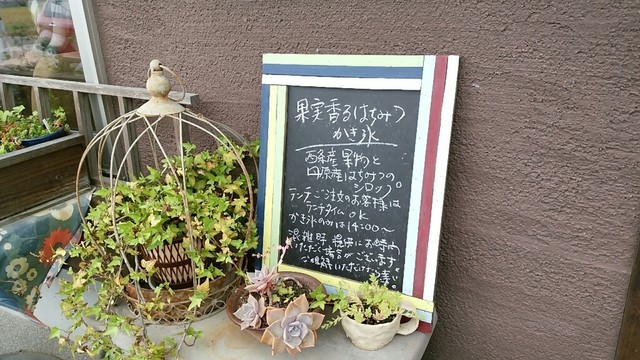 果実香るはちみつ
かき氷
西条産果物と
田原産はちみつの
シロップ
ランチご注文のお客様は
ランチタイムOK
かき氷のみは14:00〜
混雑時、提供にお時間
いただく場合がございます
ご理解いただけますと幸い